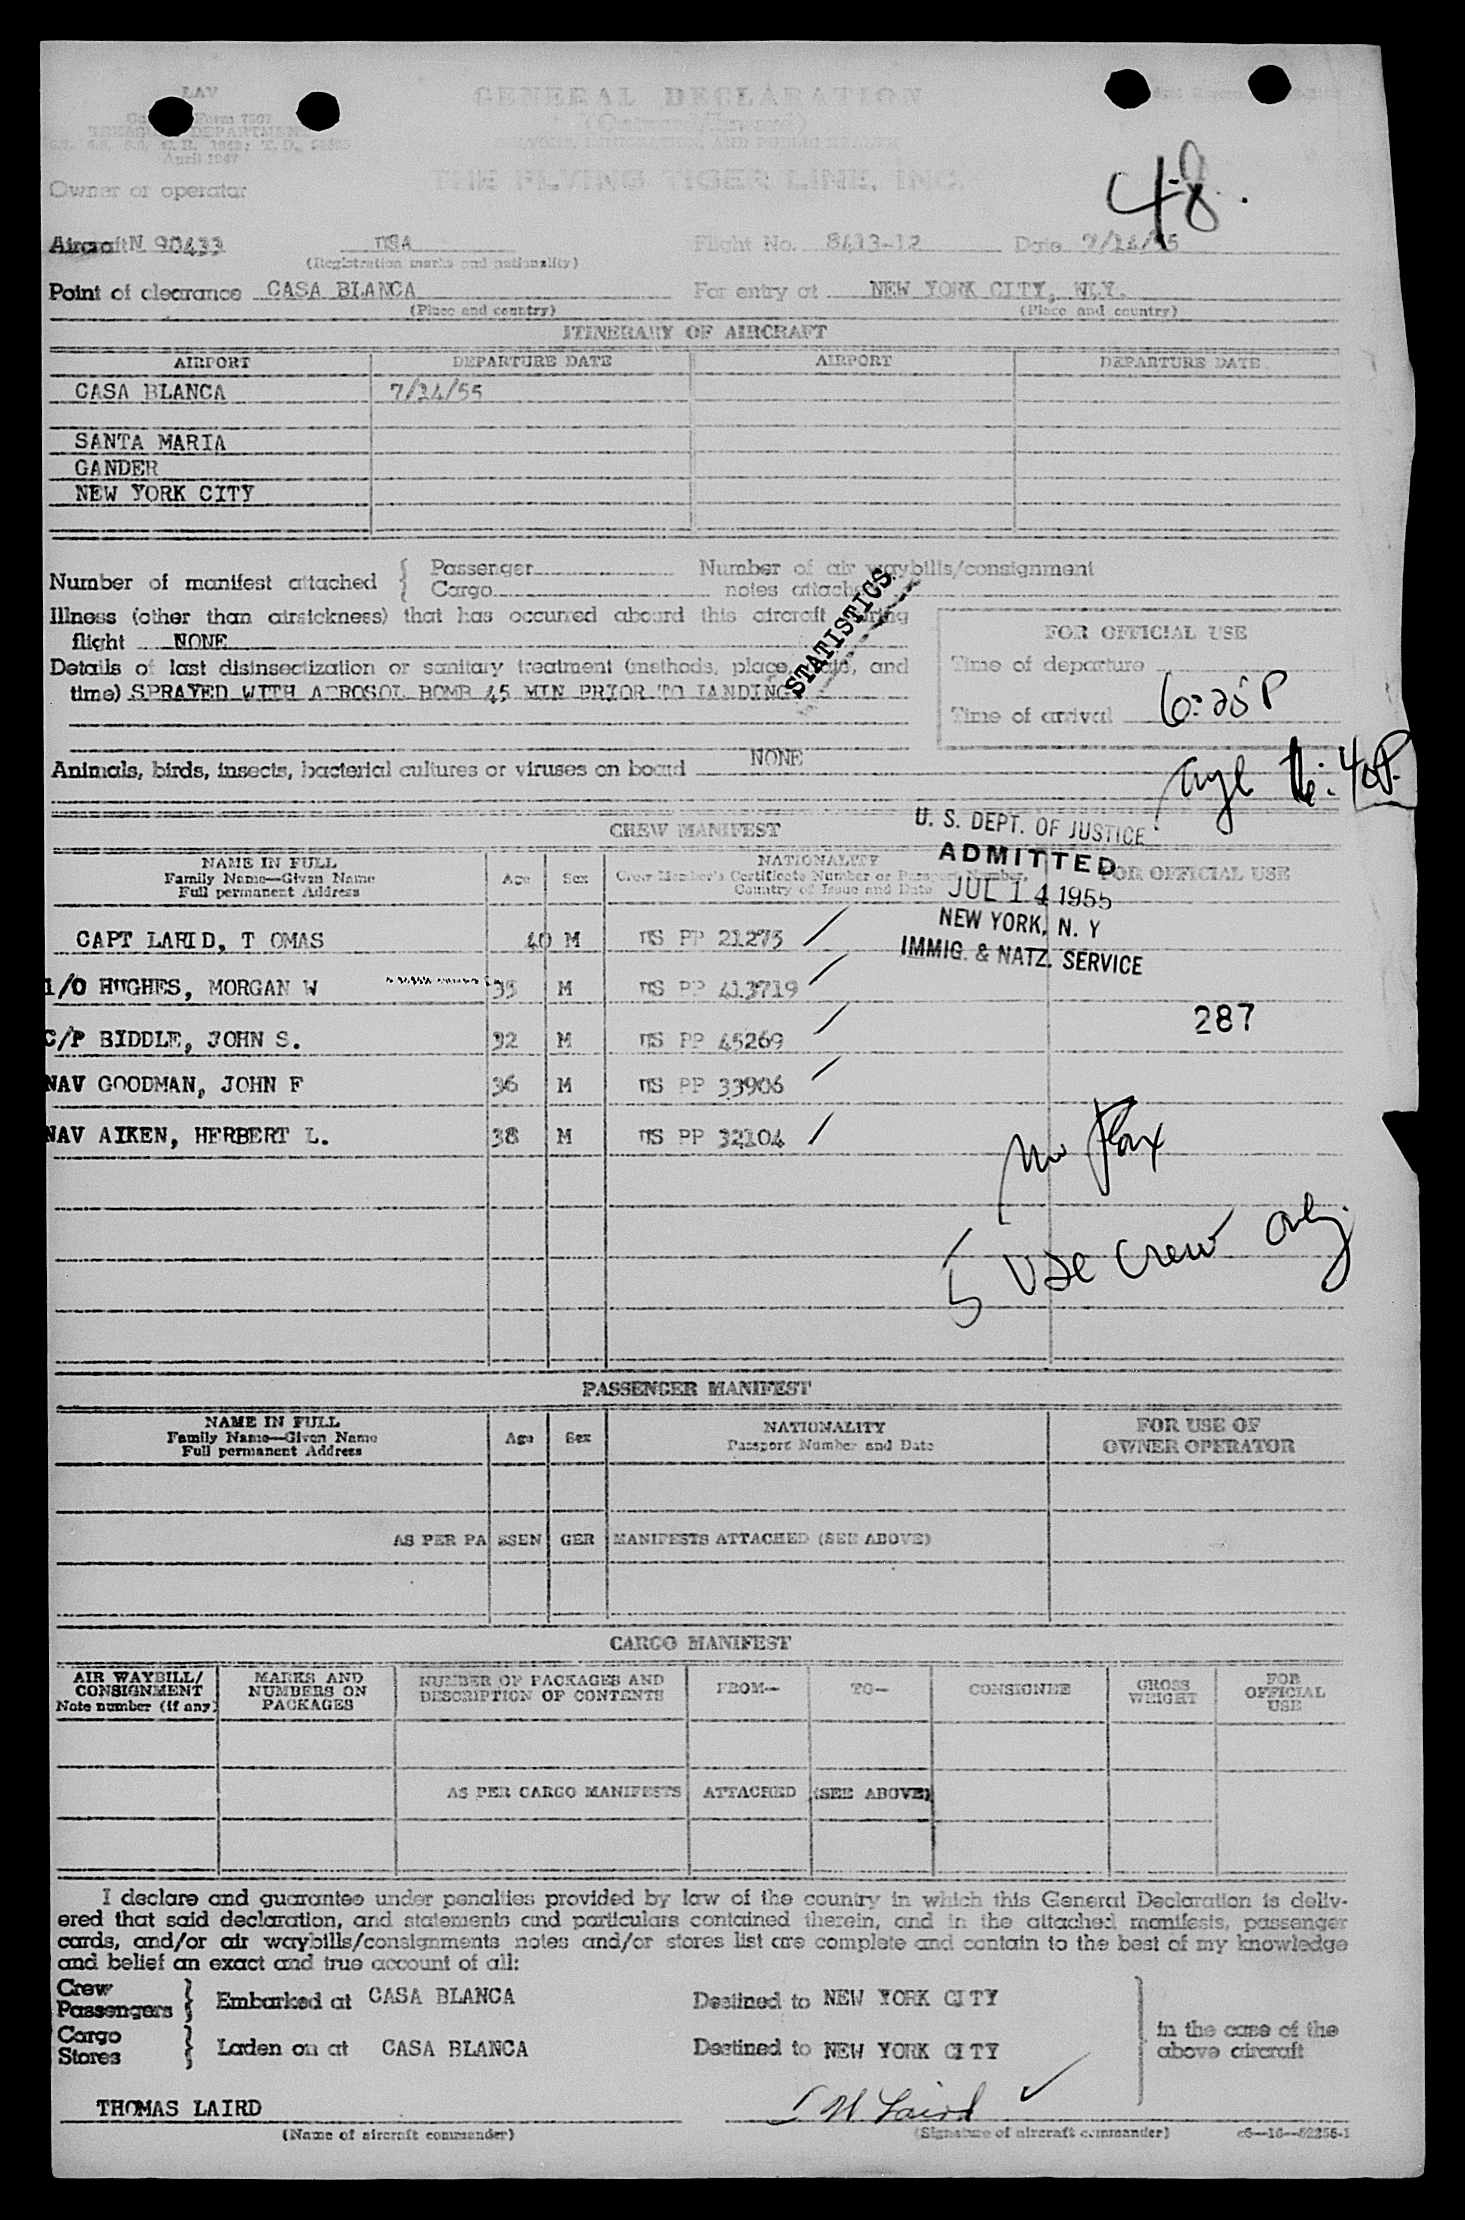 LAV
GENERAL DECLARATION
(Outward/Inward)
CUSTOMS, IMMIGRATION, AND PUBLIC HEALTH
TREASURY DEPARTMENT
April 1947
THE FLYING TIGER LINE, INC.
Owner or operator
48.
Aircraft N 90433 USA Flight No. 8413-12 Date
(Registration marks and nationality)
Point of clearance CASA BLANCA For entry at NEW YORK CITY, N.Y.
(Place and country) (Place and country)
ITINERARY OF AIRCRAFT
AIRPORT DEPARTURE DATE AIRPORT DEPARTURE DATE
CASA BLANCA 7/14/55
SANTA MARIA
GANDER
NEW YORK CITY
Number of manifest attached { Passenger Number of air waybills/consignment
Cargo notes attached
STATISTICS
Illness (other than airsickness) that has occurred aboard this aircraft during
flight NONE
FOR OFFICIAL USE
Details of last disinsectization or sanitary treatment (methods, place, date, and
time) SPRAYED WITH AEROSOL BOMB 45 MIN PRIOR TO LANDING
Time of departure
Time of arrival 6:25P
Animals, birds, insects, bacterial cultures or viruses on board NONE
:40P.
CREW MANIFEST
U. S. DEPT. OF JUSTICE
ADMITTED
JUL 14 1955
NEW YORK, N. Y
IMMIG. & NATZ. SERVICE
NAME IN FULL NATIONALITY
Family Name—Given Name Age Sex Crew Member's Certificate Number or Passport Number, FOR OFFICIAL USE
Full permanent Address Country of Issue and Date
CAPT LARID, T OMAS 40 M US PP 21275
1/O HUGHES, MORGAN W 35 M US PP 413719
287
C/P BIDDLE, JOHN S. 32 M US PP 45269
NAV GOODMAN, JOHN F 36 M US PP 33906
NAV AIKEN, HERBERT L. 38 M US PP 32104
5 USC Crew only
PASSENGER MANIFEST
NAME IN FULL NATIONALITY FOR USE OF
Family Name—Given Name Age Sex Passport Number and Date OWNER OPERATOR
Full permanent Address
AS PER PASSENGER MANIFESTS ATTACHED (SEE ABOVE)
CARGO MANIFEST
AIR WAYBILL/ MARKS AND NUMBER OF PACKAGES AND FROM— TO— CONSIGNEE GROSS FOR
CONSIGNMENT NUMBERS ON DESCRIPTION OF CONTENTS WEIGHT OFFICIAL
Note number (if any) PACKAGES USE
AS PER CARGO MANIFESTS ATTACHED (SEE ABOVE)
I declare and guarantee under penalties provided by law of the country in which this General Declaration is deliv-
ered that said declaration, and statements and particulars contained therein, and in the attached manifests, passenger
cards, and/or air waybills/consignments notes and/or stores list are complete and contain to the best of my knowledge
and belief an exact and true account of all:
Crew
Passengers } Embarked at CASA BLANCA Destined to NEW YORK CITY
Cargo
Stores } Laden on at CASA BLANCA Destined to NEW YORK CITY
in the case of the
above aircraft
THOMAS LAIRD T W Laird
(Name of aircraft commander) (Signature of aircraft commander) c6—16—52256-1